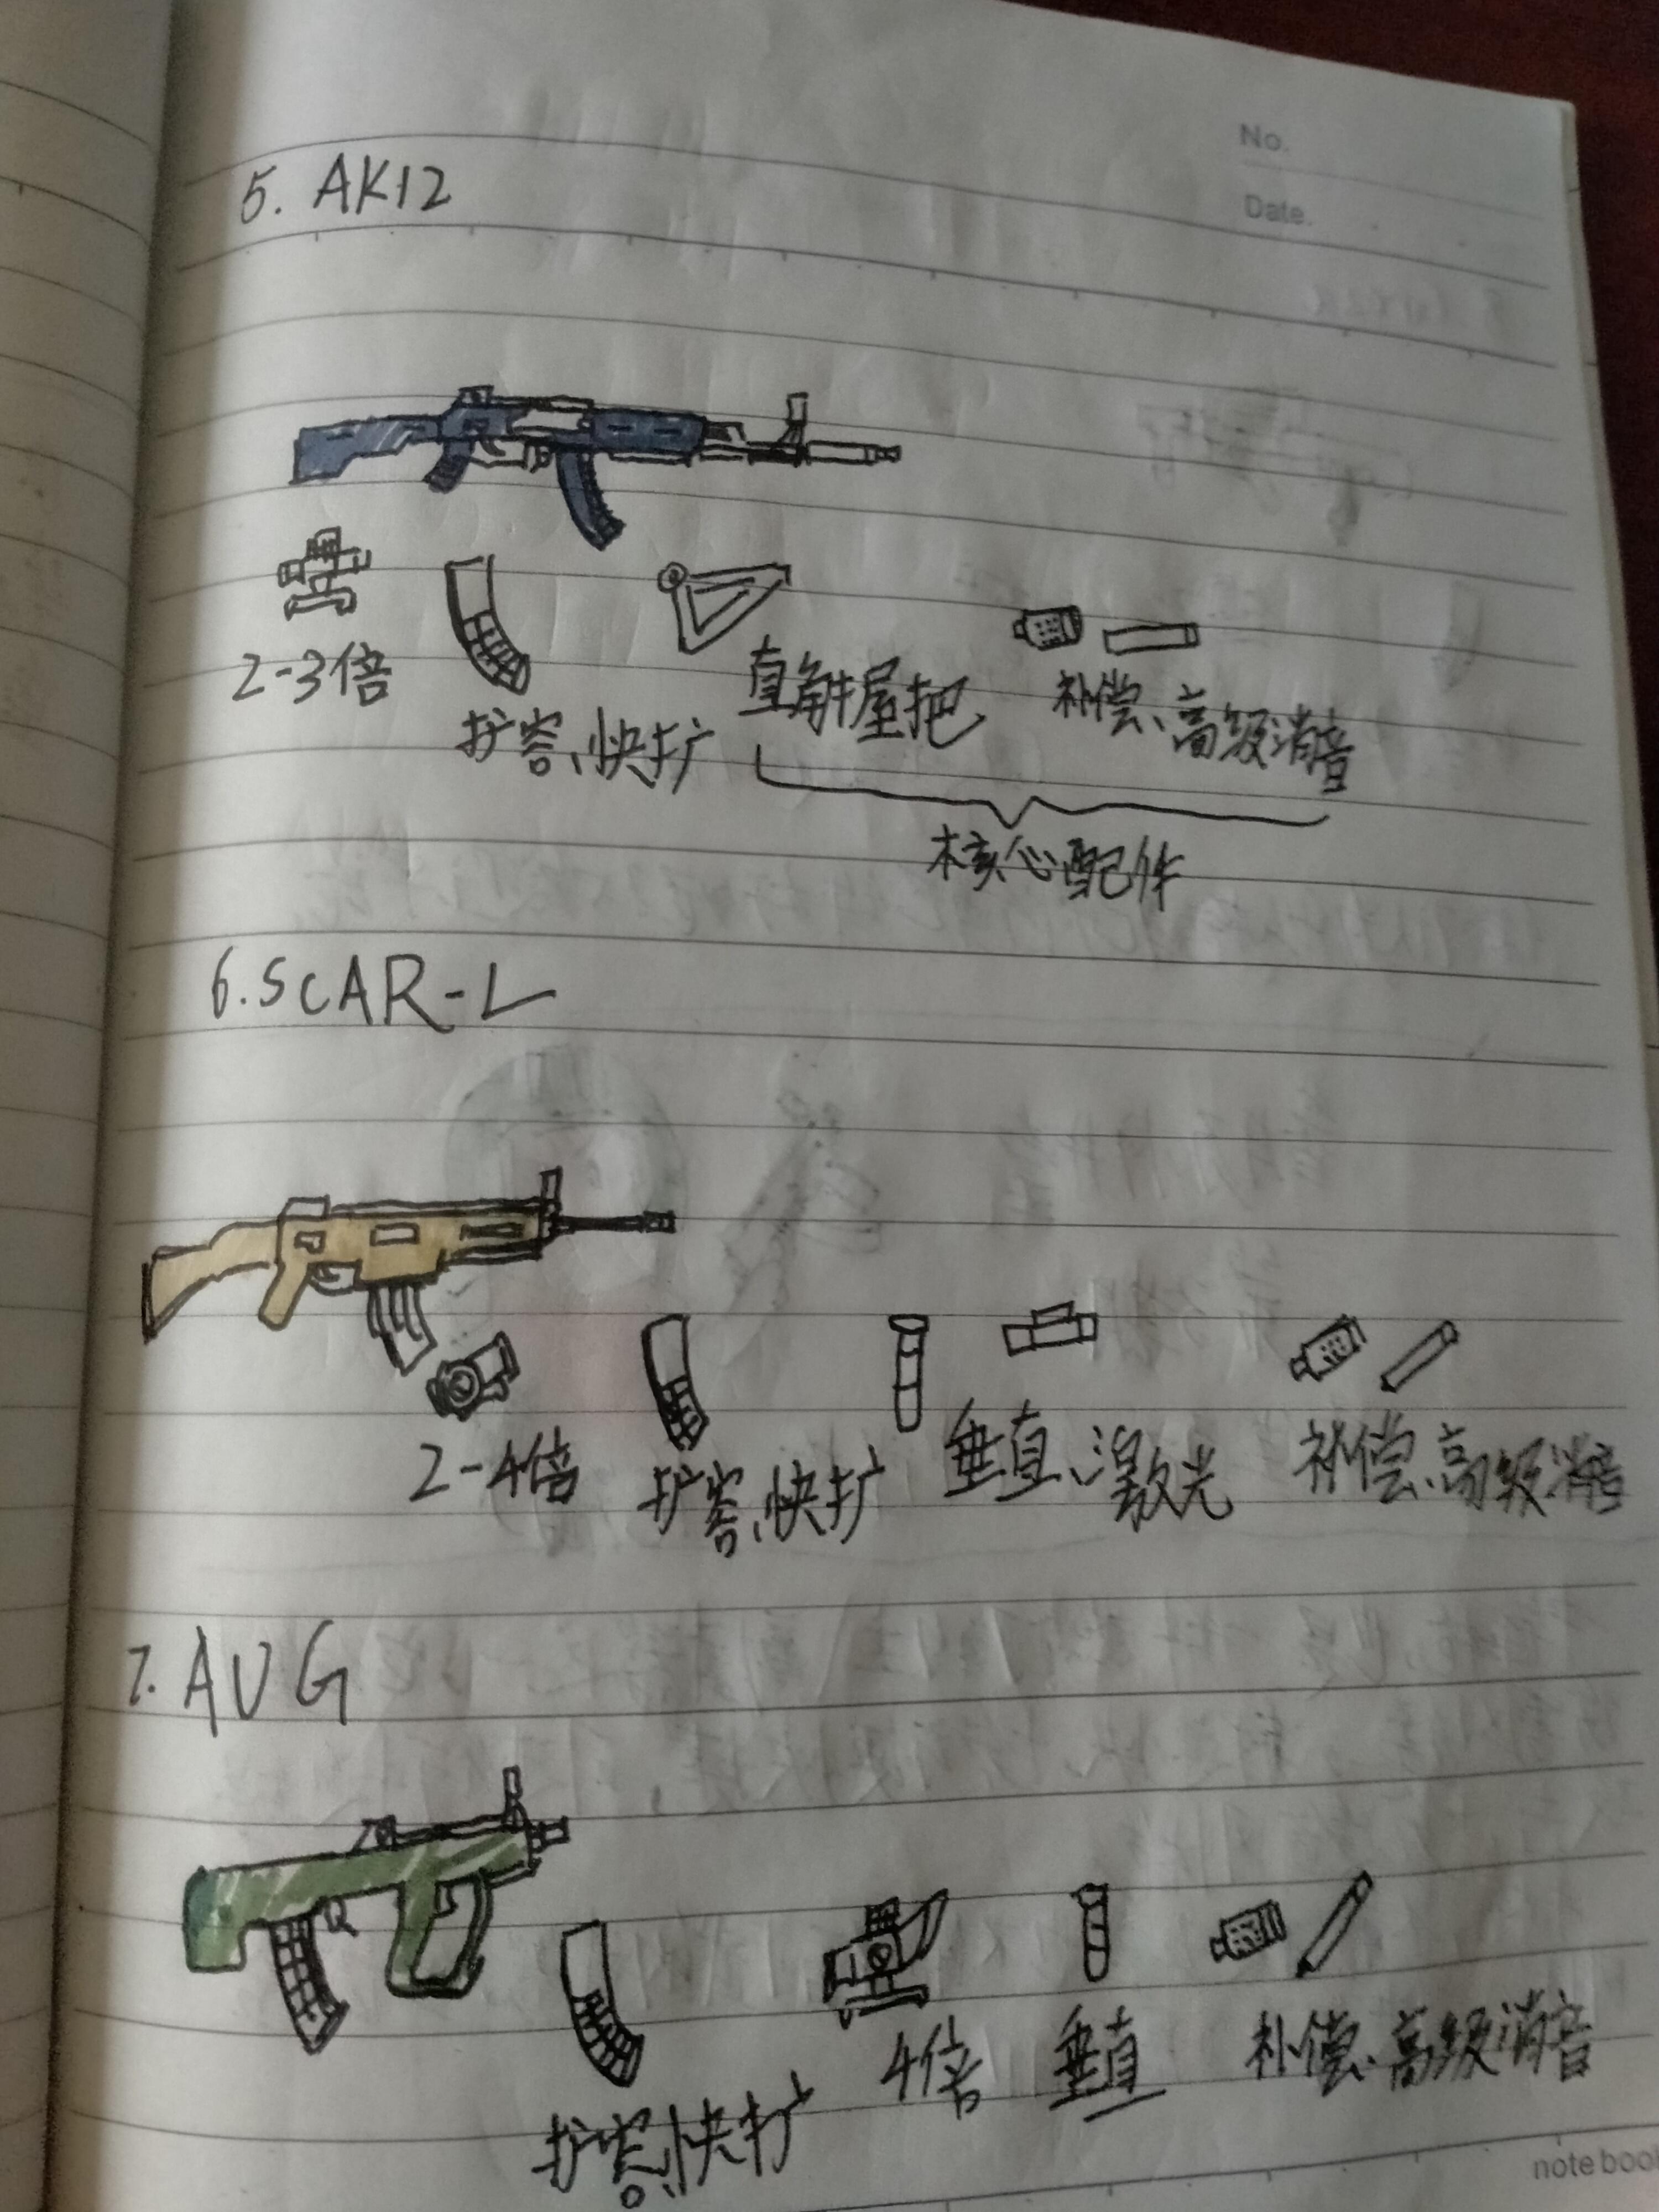 No.
Date.
5. AK12
2-3倍
扩容、快扩
直角握把
补偿、高级消音
核心配件
6.SCAR-L
2-4倍
扩容、快扩
垂直、激光
补偿、高级消音
7. AUG
扩容、快扩
4倍
垂直
补偿、高级消音